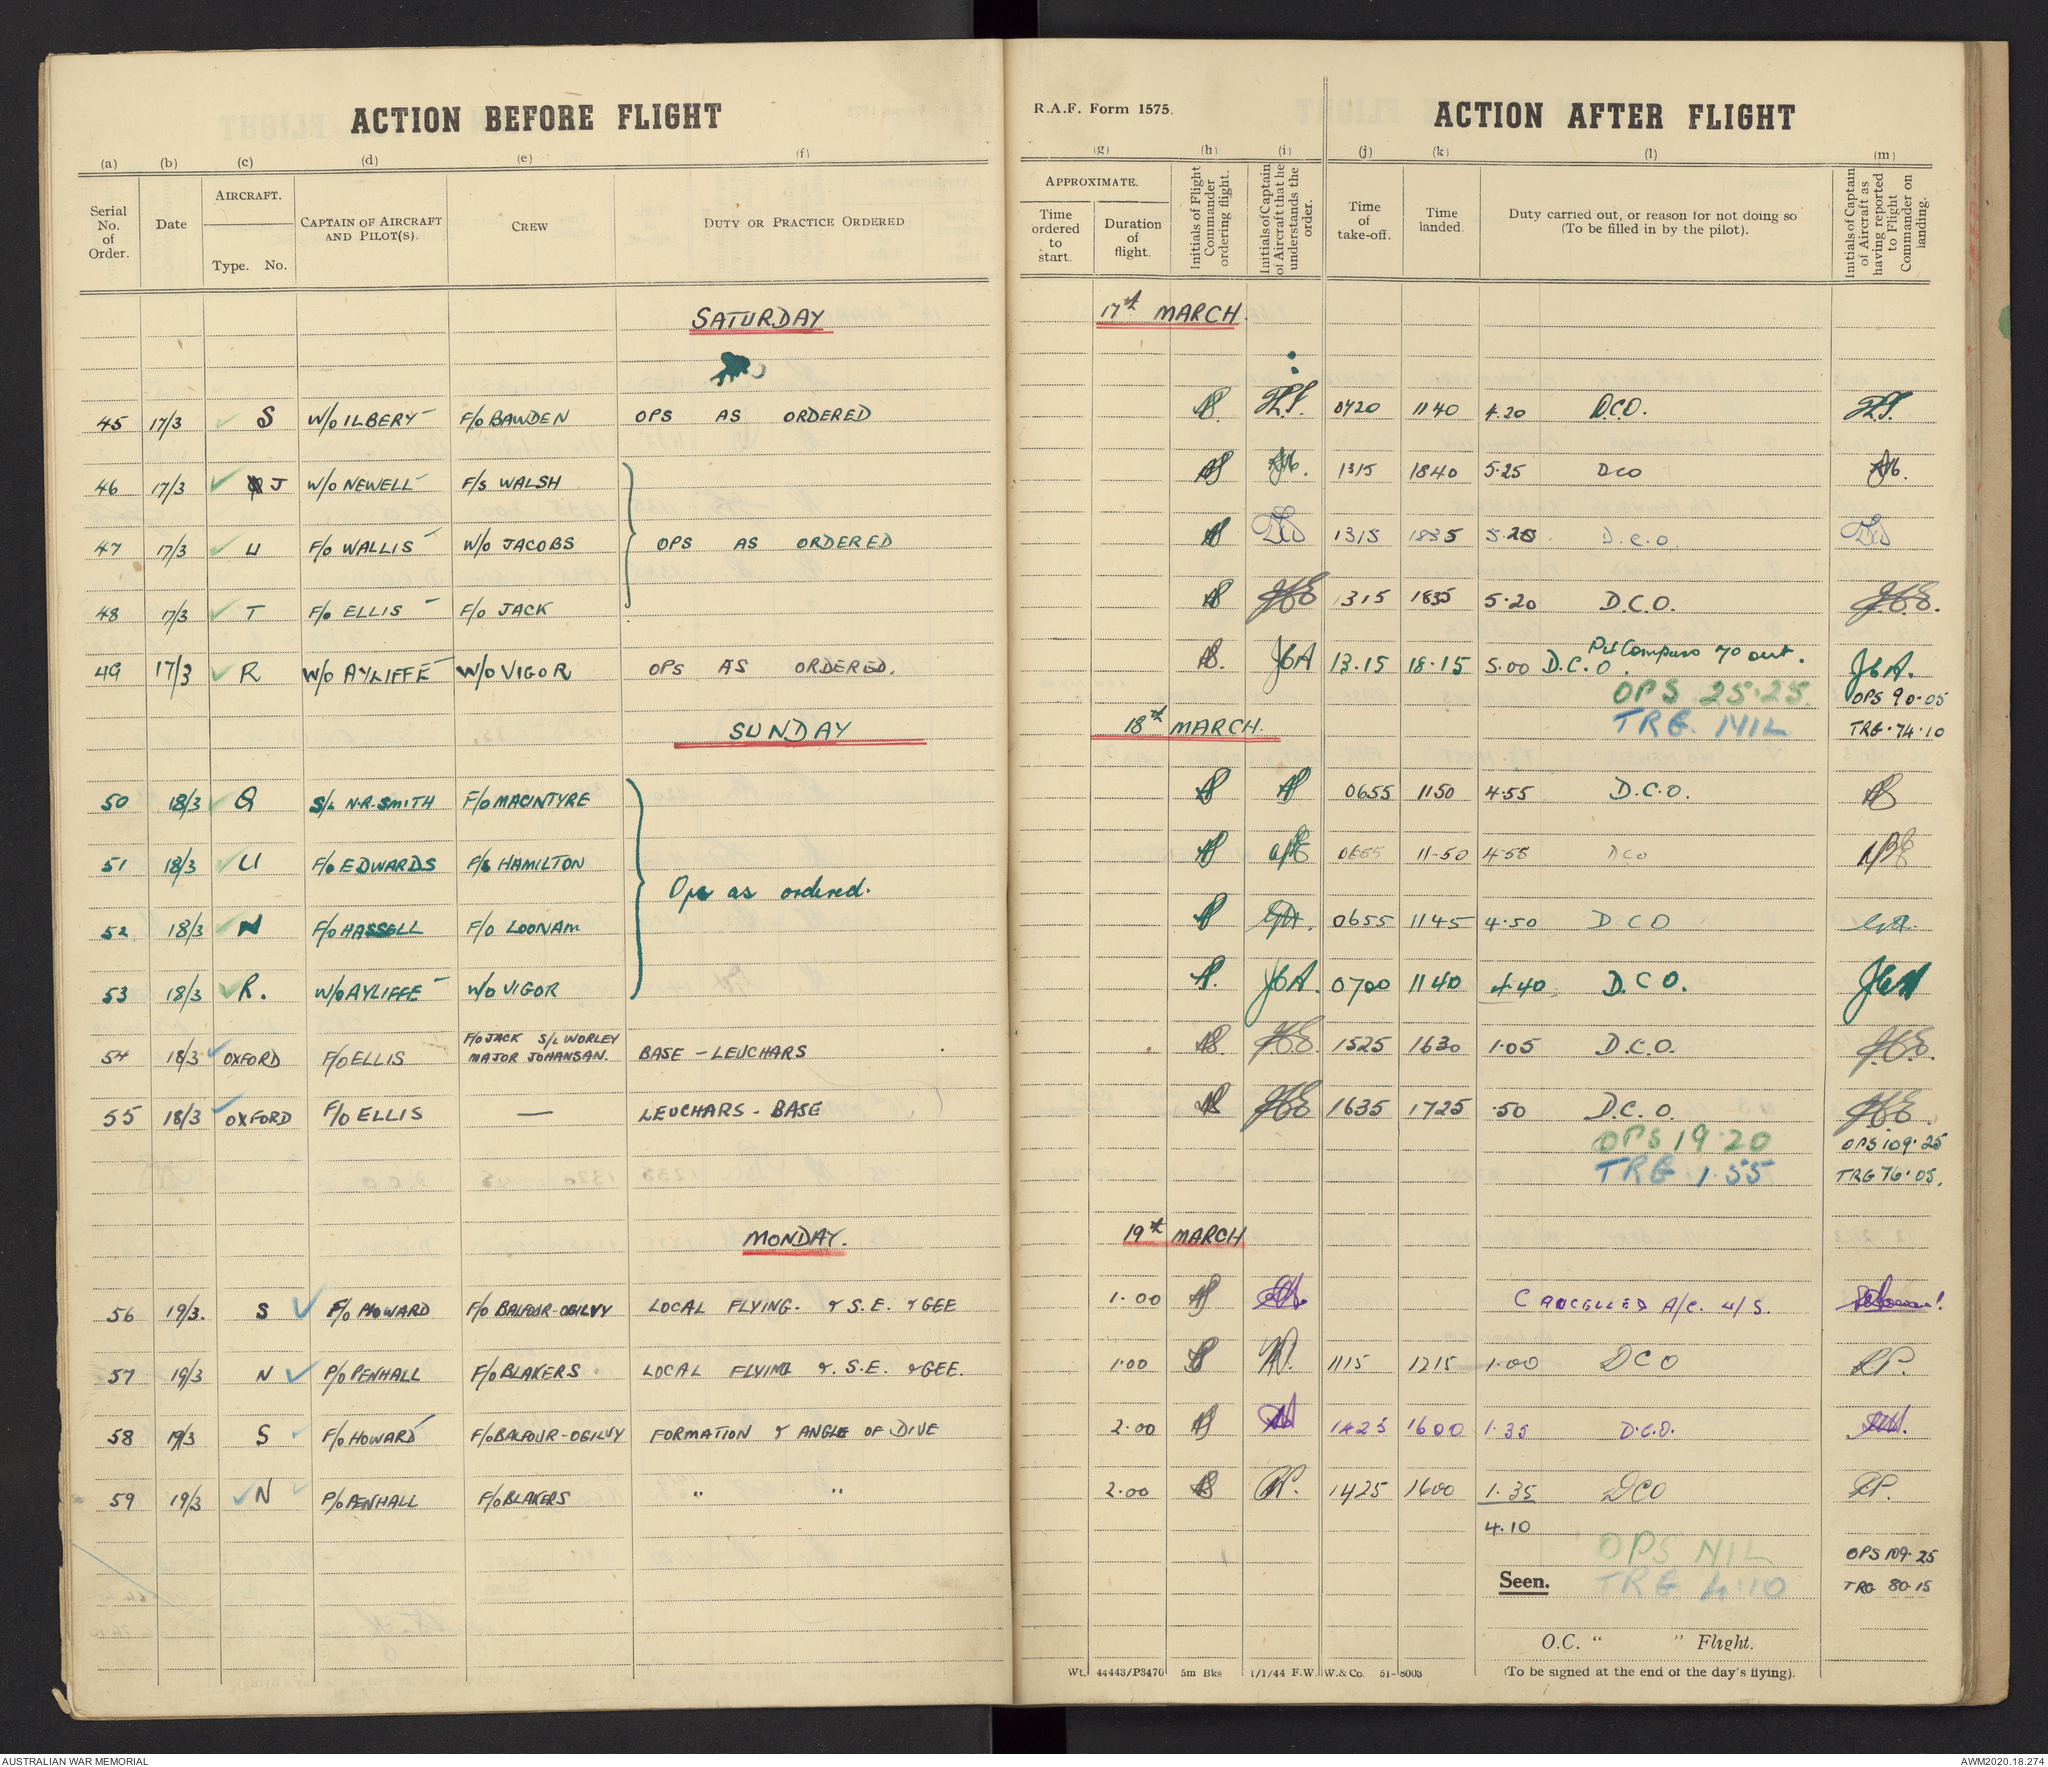 ACTION BEFORE FLIGHT
R.A.F. Form 1575.
ACTION AFTER FLIGHT
(a) (b) (c) (d) (e) (f) (g) (h) (i) (j) (k) (l) (m)
Serial No. of Order.
Date
AIRCRAFT.
Type. No.
CAPTAIN OF AIRCRAFT AND PILOT(S).
CREW
DUTY OR PRACTICE ORDERED
APPROXIMATE.
Time ordered to start.
Duration of flight.
Initials of Flight Commander ordering flight.
Initials of Captain of Aircraft that he understands the order.
Time of take-off.
Time landed.
Duty carried out, or reason for not doing so (To be filled in by the pilot).
Initials of Captain of Aircraft as having reported to Flight Commander on landing.
SATURDAY 17th MARCH.
45 17/3 S W/O ILBERY F/O BAWDEN OPS AS ORDERED 0720 1140 4.20 D.C.O.
46 17/3 J W/O NEWELL F/S WALSH 1315 1840 5.25 DCO
47 17/3 U F/O WALLIS W/O JACOBS OPS AS ORDERED 1315 1835 5.20 D.C.O.
48 17/3 T F/O ELLIS F/O JACK 1315 1835 5.20 D.C.O.
49 17/3 R W/O AYLIFFE W/O VIGOR OPS AS ORDERED. JGA 13.15 18.15 5.00 D.C.O. out. JGA.
OPS 25.25. OPS 90.05
SUNDAY 18th MARCH. TRG. NIL TRG. 74.10
50 18/3 Q S/L N.R. SMITH F/O MACINTYRE 0655 1150 4.55 D.C.O.
51 18/3 U F/O EDWARDS F/S HAMILTON 0655 11-50 4.55 DCO
Ops as ordered.
52 18/3 N F/O HASSELL F/O LOONAM 0655 1145 4.50 DCO
53 18/3 R. W/O AYLIFFE W/O VIGOR JGA. 0700 1140 4.40 D.C.O. JGA
54 18/3 OXFORD F/O ELLIS F/O JACK S/L WORLEY MAJOR JOHANSAN. BASE - LEUCHARS 1525 1630 1.05 D.C.O.
55 18/3 OXFORD F/O ELLIS — LEUCHARS - BASE 1635 1725 .50 D.C.O.
OPS 19.20 OPS 109.25
TRG 1.55 TRG 76.05.
MONDAY. 19th MARCH
56 19/3. S F/O HOWARD F/O BALFOUR-OGILVY LOCAL FLYING. & S.E. & GEE 1.00 CANCELLED A/C. U/S.
57 19/3 N P/O PENHALL F/O BLAKERS LOCAL FLYING & S.E. & GEE. 1.00 1115 1215 1.00 DCO R.P.
58 19/3 S F/O HOWARD F/O BALFOUR-OGILVY FORMATION & ANGLE OF DIVE 2.00 1425 1600 1.35 D.C.O.
59 19/3 N P/O PENHALL F/O BLAKERS " " 2.00 RP. 1425 1600 1.35 DCO RP.
4.10
OPS NIL OPS 109.25
Seen. TRG 4.10 TRG 80.15
O.C. " " Flight.
Wt. 44443/P3470 5m Bks 1/1/44 F.W. W. & Co. 51-8003 (To be signed at the end of the day's flying).
AUSTRALIAN WAR MEMORIAL AWM2020.18.274